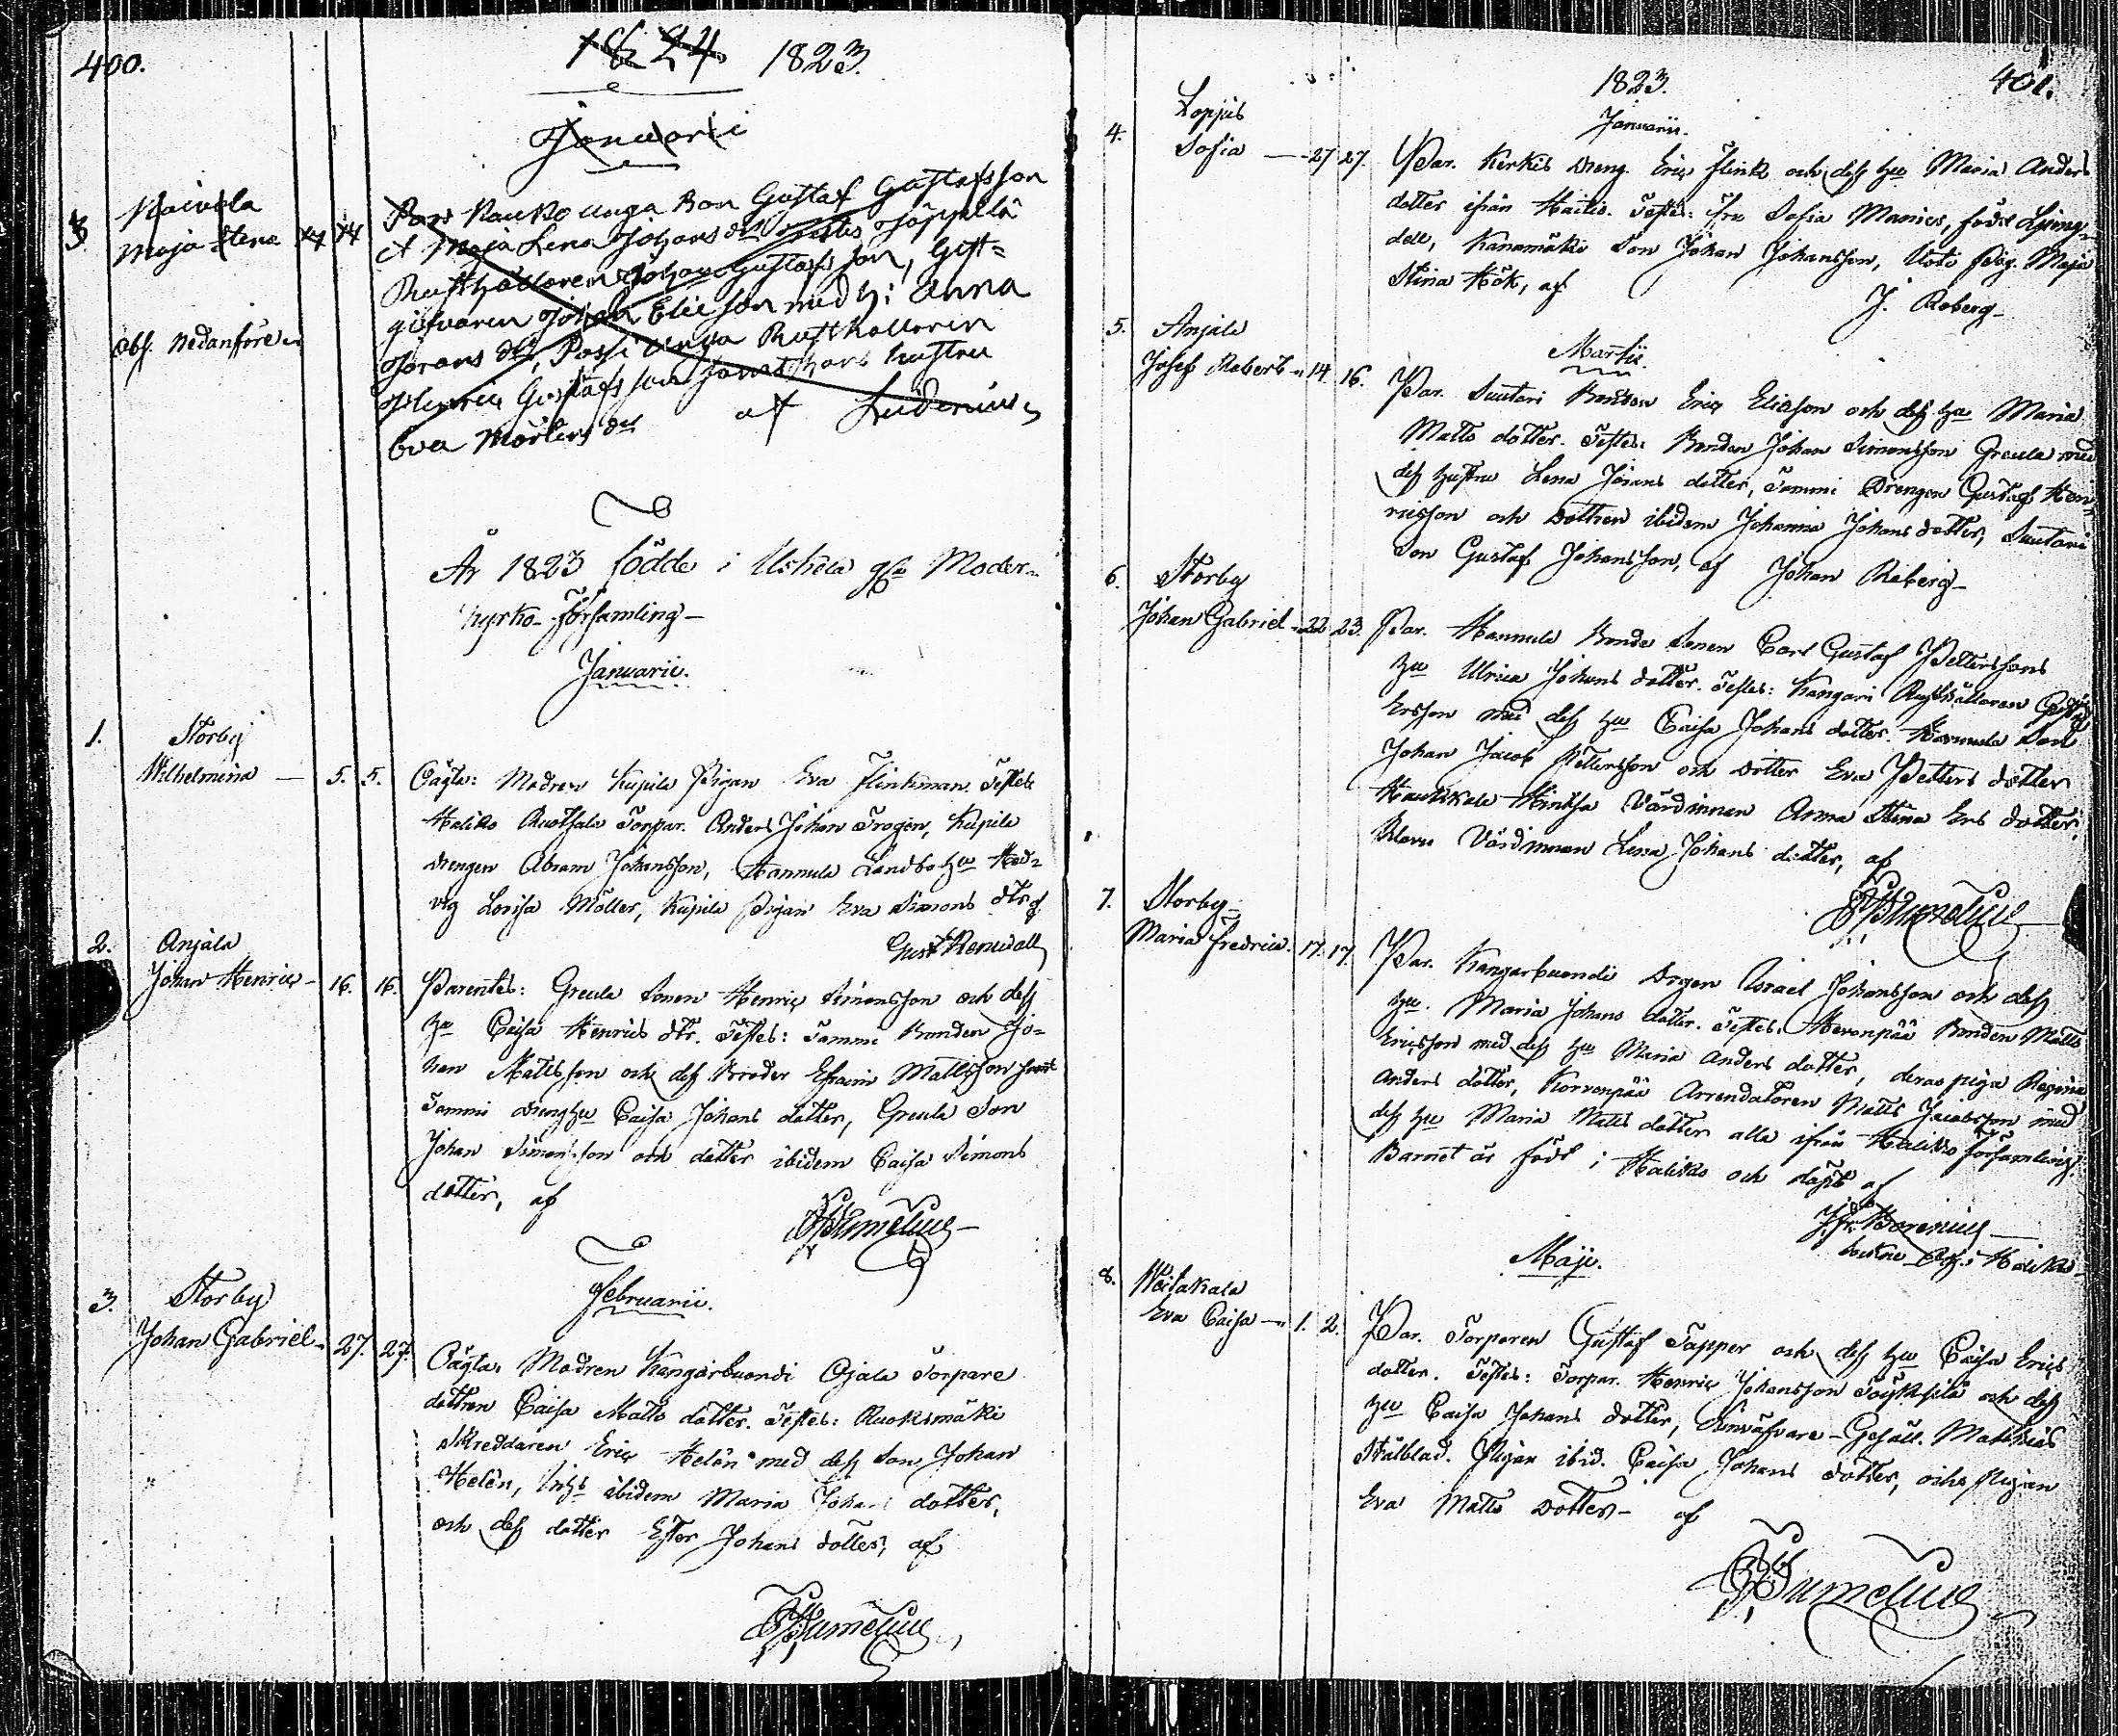 400.
1824 1823.
Januari
Maja Stena 14 14
Par Kauko unga Bon Gustaf Gustafsson
et Maja Lena Johans dr Testes Jäppilä
Rusthållaren Johan Gustafsson, Gäst=
gifvaren Johan Eliæson med h: Anna
Jörans dr, Passi unga Rusthållaren
Henric Gustafsson samt hans hustru
Eva Mårtens dr af Lidenius
obs. nedanföre
År 1823 födde i Uskela Moder-
kyrko-Församling-
Januarii.
1. Storby
Wilhelmina — 5. 5. Oägta: Modren Kupila Pigan Eva Flinkman Testes
Haliko Torpar. Anders Johan Trogen, Kupila
drengen Abram Johansson, Hannula Landbo hu Hed=
vig Lovisa Möller, Kupila Pigan Eva Simons dtr af
Gust Renvall
2. Anjala
Johan Henric - 16. 16. Parentes: Grecula Sonen Henric Simonsson och dess
hu Caisa Henrics dtr. Testes: Tammi Bonden Jo=
han Mattsson och dess Broder Efraim Mattsson samt
Tammi dreng hu Caisa Johans dotter, Grecula Son
Johan Simonsson och dotter ibidem Caisa Simons
dotter, af
Februarii.
3. Storby
Johan Gabriel - 27. 27. Oägta. Modren Kangarbuondi Ojala Torpare
dottren Caisa Matts dotter. Testes: Ruoksmäki
Skreddaren Eric Helén med dess Son Johan
Helén, ibidem Maria Johans dotter,
och dess dotter Ester Johans dotter, af
1823. 401.
Januarii.
4.
Sofia — 27 27. Par. Kerkis Dreng. Eric Flink och dess hu Maria Anders
dotter ifrån Haliko. Testes: Fru Sofia född Ljung-
dell, Kanamäki Son Johan Johansson, Uoti Pig. Maja
Stina Hök, af J. Roberg-
Martii.
5. Anjala
Josef Robert - 14. 16. Par. Suutari Bonden Eric Eliæson och dess hu Maria
Matts dotter. Testes: Bonden Johan Simonsson Grecula med
dess hustru Lena Jörans dotter, Tammi Drengen Gustaf Hen-
ricsson och Dottren ibidem Johanna Johans dotter, Suutari
Son Gustaf Johansson, af Johan Roberg-
6. Storby
Johan Gabriel - 22 23. Par. Hannula Bonde Sonen Carl Gustaf Pettersons
hu Ulrica Johans dotter. Testes: Kangari Rusthållaren
Ersson med dess hu Caisa Johans dotter. Hannula Son
Johan Jacob Pettersson och dotter Eva Petters dotter
Värdinnan Anna Stina Ers dotter,
Värdinnan Lena Johans dotter, af
7. Storby
Maria Fredrica. 17. 17. Par. Kangarbuondi Drgen Israel Johansson och dess
hu. Maria Johans dotter. Testes. Bonden Matts
Ericsson med dess hu Maria Anders dotter, deras piga Regina
Anders dotter, Korvenpää Arrendatoren Matts Jacobsson med
dess hu Maria Matts dotter alla ifrån Haliko församling.
Barnet är född i Haliko och döpt af
Borenius
Maji.
8.
Eva Caisa — 1. 2. Par. Torparen Gustaf Tapper och dess hu Caisa Erics
dotter. Testes: Torpar. Henric Johansson och dess
hu Caisa Johans dotter, Linväfvare-Gesäll. Matthias
Stålblad. Pigan ibid. Caisa Johans dotter, och Pigan
Eva Matts Dotter- af